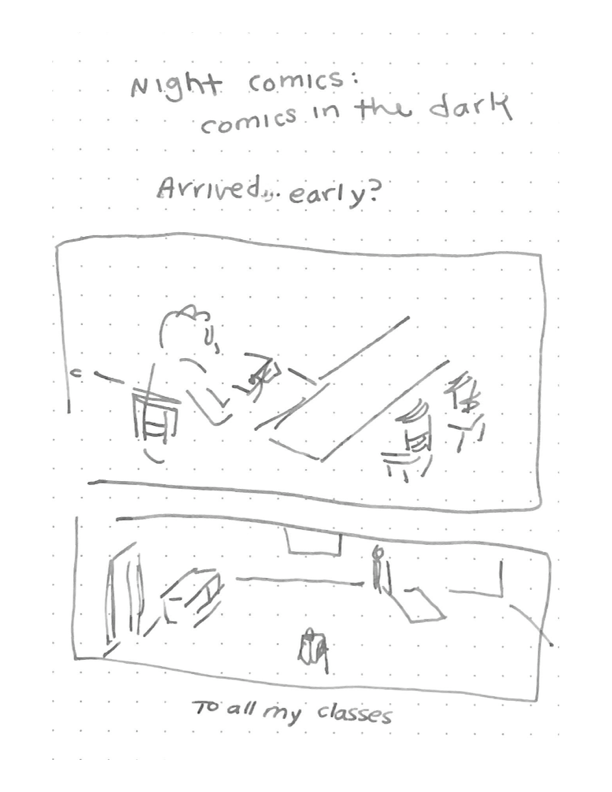 Night comics:
comics in the dark
Arrived... early?
To all my classes